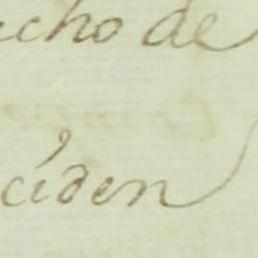 acho de
ciden